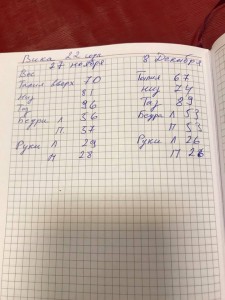 Вика 22 года
27 ноября
Вы
Талия вверх 70
Низ 81
Таз 96
Бедра Л 56
П 57
Руки Л 29
П 28
8 Декабря
Талия 67
Низ 74
Таз 89
Бедра Л 53
П 53
Руки Л 26
П 26